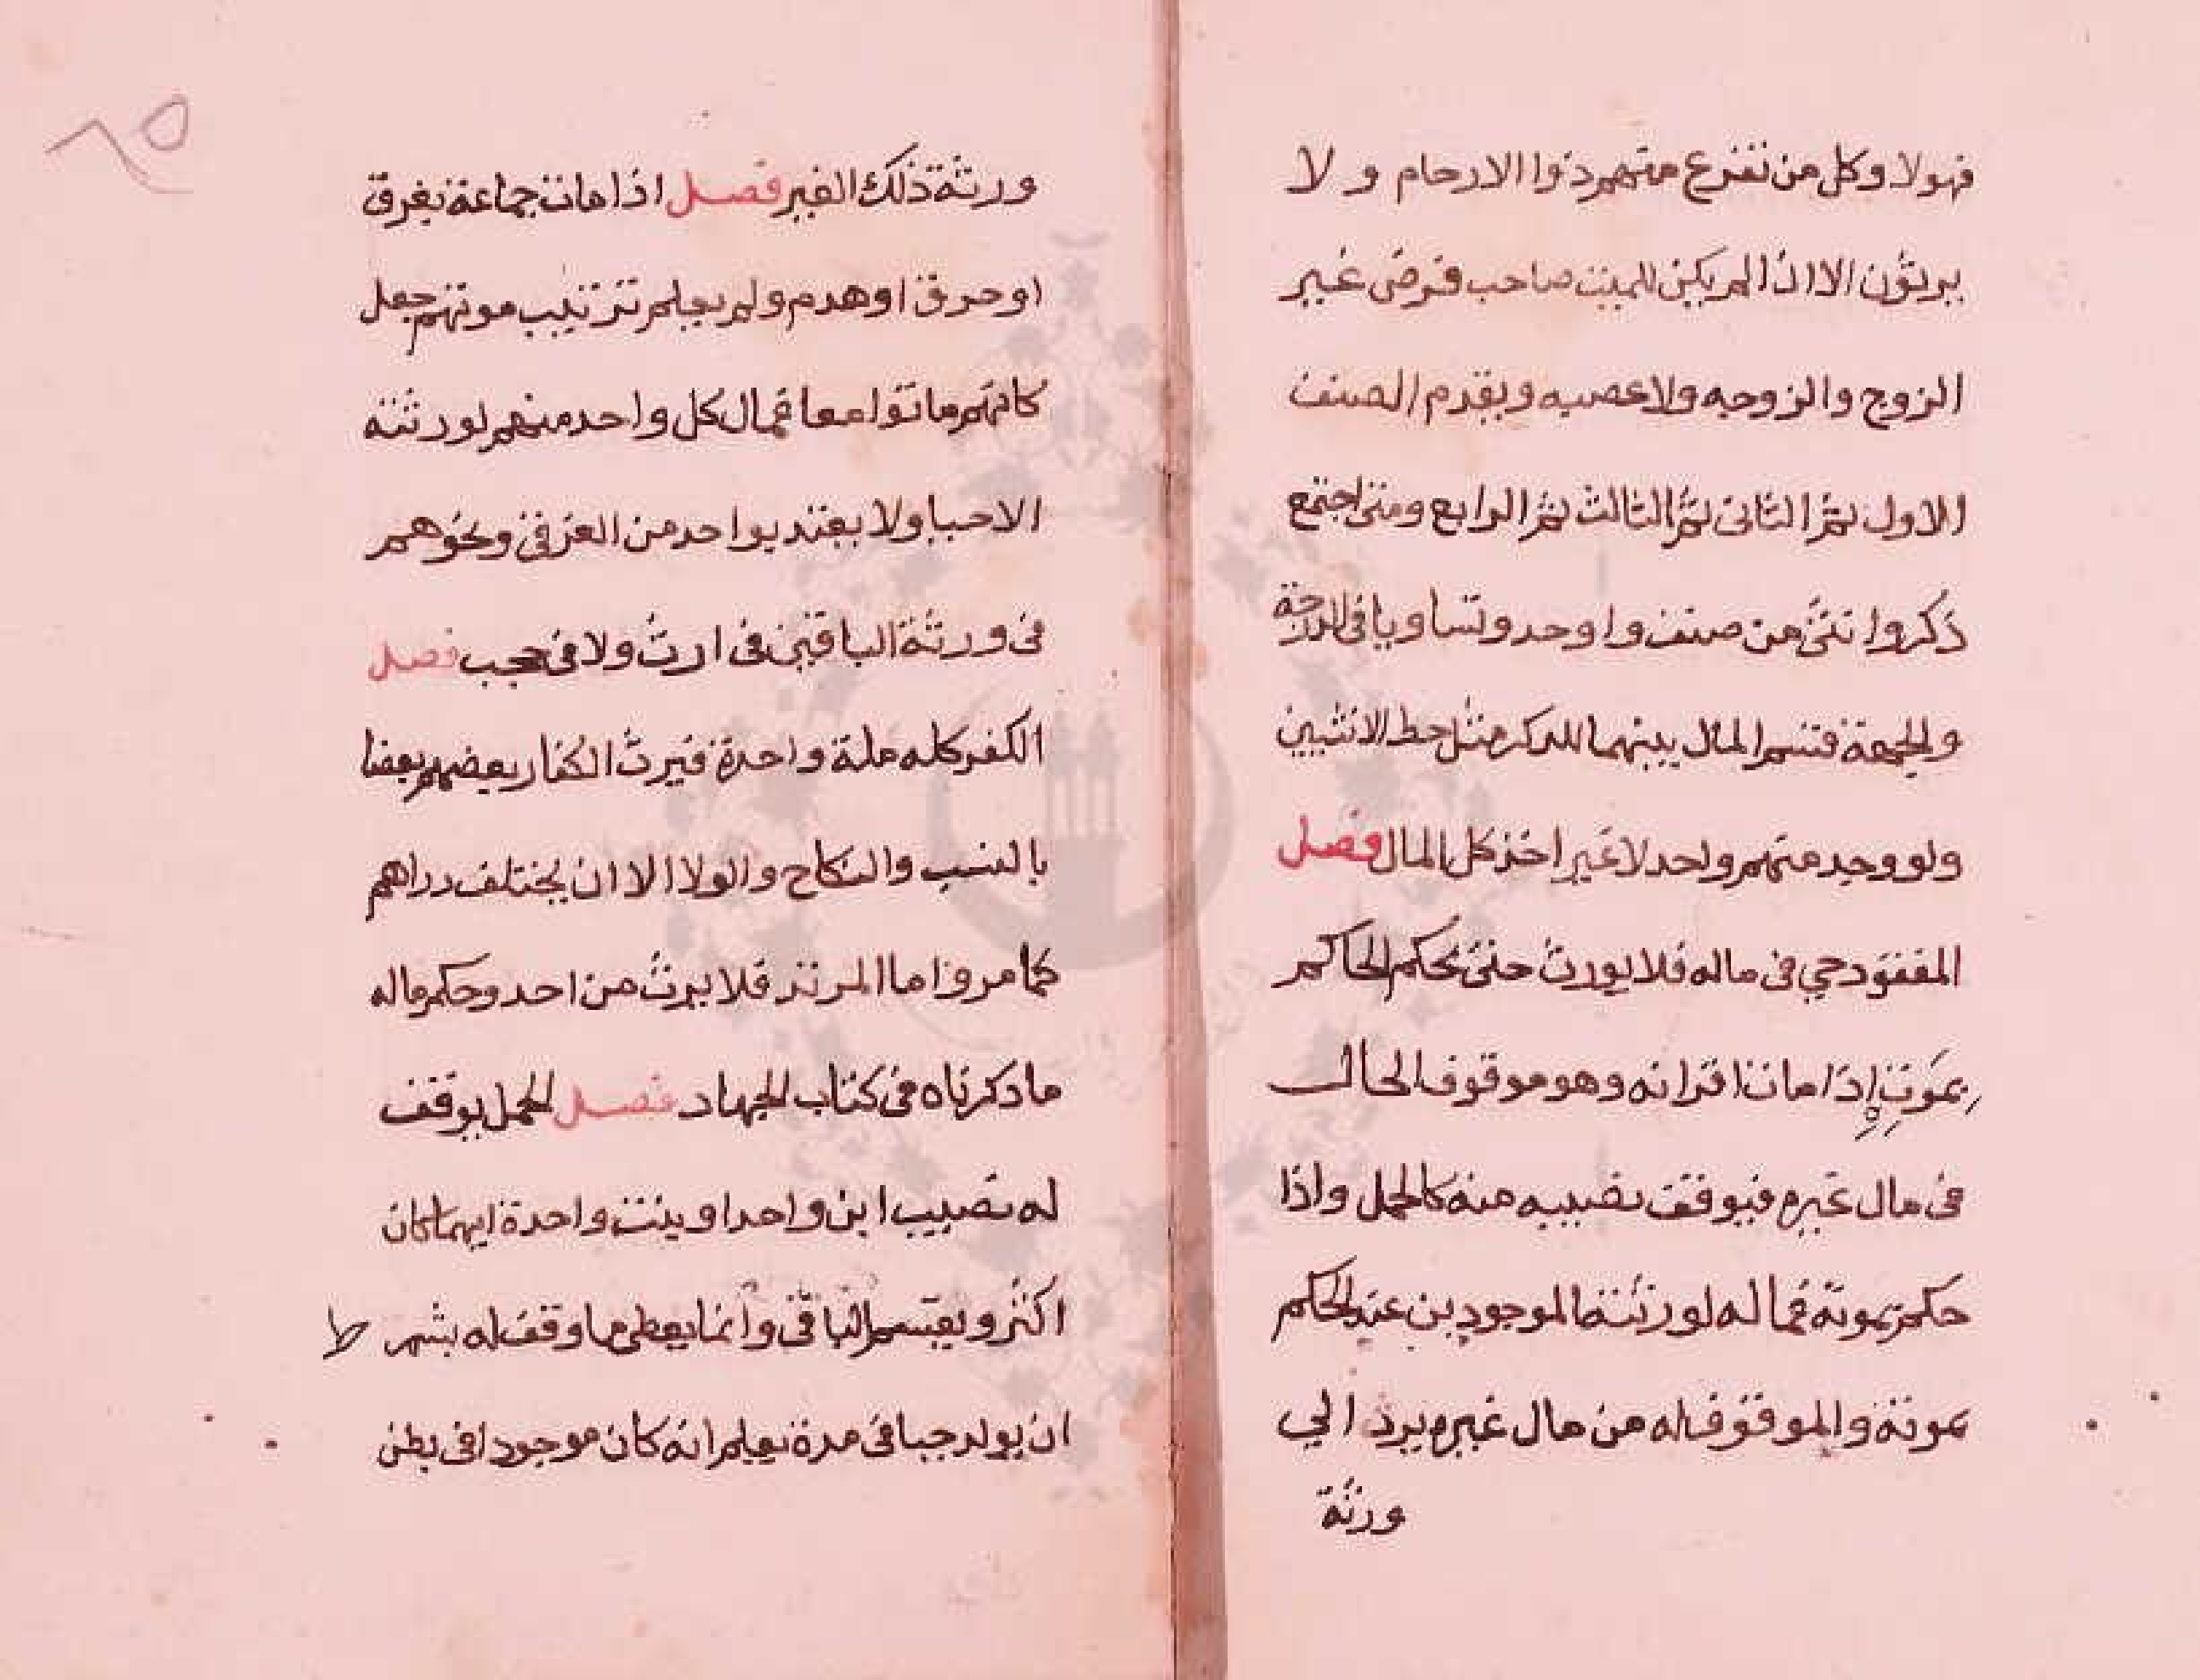 فهولا وكل من تفرع منهم ذوا الارحام ولا
يرثون الا اذا لم يكن للميت صاحب فرض غير
الزوج والزوجه ولا عصبه ويقدم الصنف
الاول ثم الثانى ثم الثالث ثم الرابع ومتى اجتمع
ذكر وانثى من صنف واوحد وتساويا فى الدرجة
والجهة قتسم المال بينهما للدكر مثل حظ الانثيين
ولو وجد منهم واحد لا غير اخذ كل المال فصل
المفقود حي فى ماله فلا يورث حتى يحكم الحاكم
بموته اذا مات اقرانه وهو موقوف الحال
فى مال غيره فيوقف نصيبه منه كالحمل واذا
حكم بموته فماله لورثته الموجودين عند الحكم
بموته والموقوف له من مال غيره يرد الي
ورثة
٨٥
ورثة ذلك الغير فصل اذا مات جماعة بغرق
او حرق او هدم ولم يعلم ترتيب موتهم جعل
كانهم ماتوا معا فمال كل واحد منهم لورثته
الاحيا ولا يعتد بواحد من الغرقى ونحوهم
فى ورثة الباقين فى ارث ولا فى حجب فصل
الكفر كله ملة واحدة فيرث الكفار بعضهم بعضا
بالنسب والنكاح والولا الا ان يختلف دراهم
كما مر واما المرتد فلا يرث من احد وحكم ماله
ما دكرناه فى كتاب الجهاد فصل الحمل يوقف
له نصيب ابن واحد او بنت واحدة ايهما كان
اكثر ويقتسم الباقى وانما يعطى ما وقف له بشرط
ان يولد حيا فى مدة يعلم انه كان موجودا فى بطن